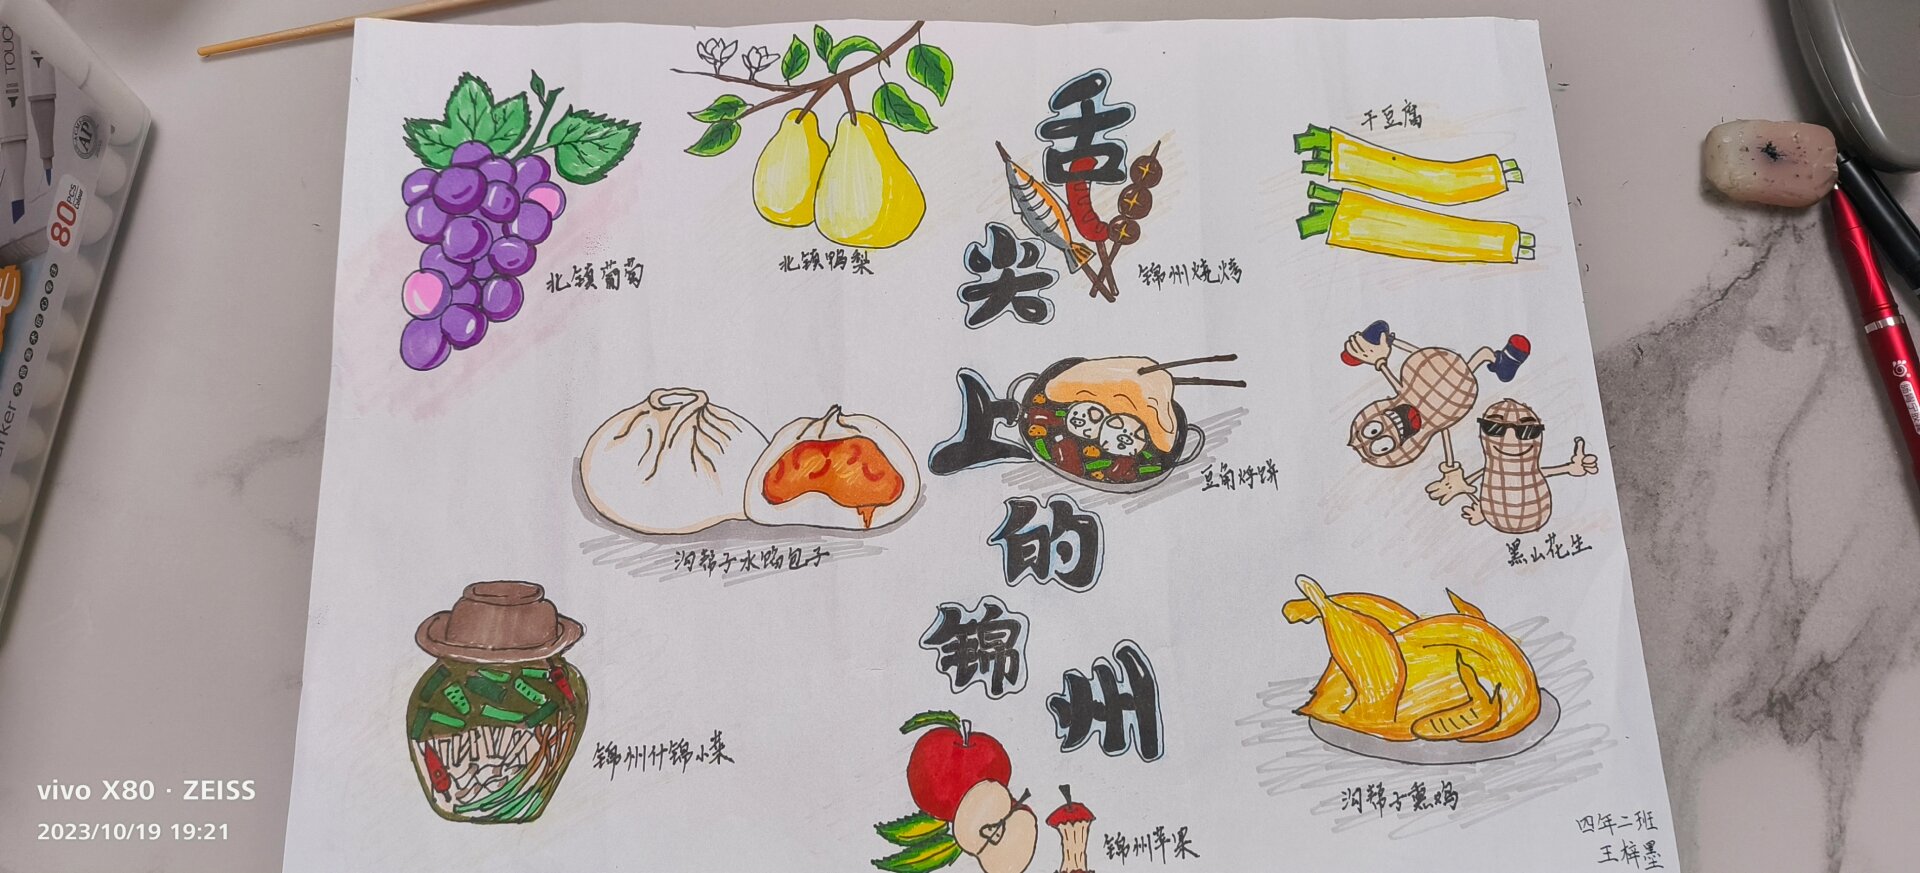 北镇葡萄
北镇鸭梨
舌尖上的锦州
锦州烧烤
干豆腐
沟帮子水馅包子
豆角焖饼
黑山花生
锦州什锦小菜
锦州苹果
沟帮子熏鸡
四年二班
王梓墨
TOUC
AP
80 PCS
Colour
arker
vivo X80 · ZEISS
2023/10/19 19:21